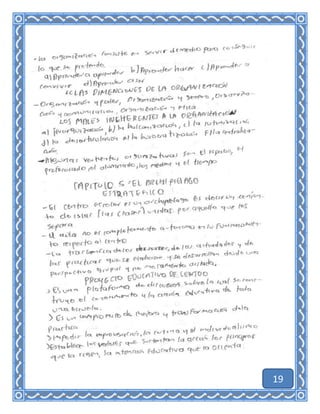 -La organización consiste en servir de medio para conseguir
lo que se pretende.
a) Aprender a aprender b) Aprender hacer c) Aprender a
convivir d) Aprender a ser
LAS DIMENCIONES DE LA ORGANIZACIÓN
-Organización y poder, Organización y genero, Organiza-
ción y comunicación, Organización y Etica
LOS MALES INHERENTES A LA ORGANIZACIÓN
a) la
d) la desarticulación e) la burocratización F) la
ción.
-Algunas organizativas son El espacio, el
profesorado, el alumnado, los medios y el tiempo.
CAPITULO 5 "EL ARCHIPIELAGO
ESTRATEGICO
-El centro escolar es un archipielago Es decir un conjun-
to de islas (las clases) unidas por aquello que las
separa
-El aula no es completamente autonoma en su funcionamien-
to respecto al centro
-La de las actividades y de
las practicas que se realizan y se desarrollan desde una
perspectiva y no meramente aislada.
PROYECTO EDUCATIVO DE CENTRO
> Es una plataforma de discursos sobre la cual se cons-
truye el conocimiento y la acción educativa de toda
una escuela.
> Es un compromiso de mejora y transformación de la
practica
> Impedir la improvisación, la rutina y el individualismo
> Establece los valores que sustentan la acción los principios
que la rigen, la intención Educativa que la orienta.
19